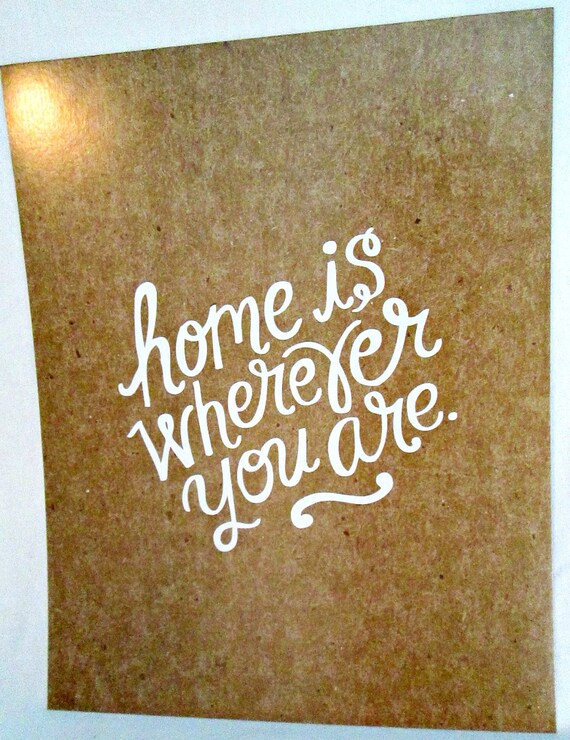 home is
wherever
you are.